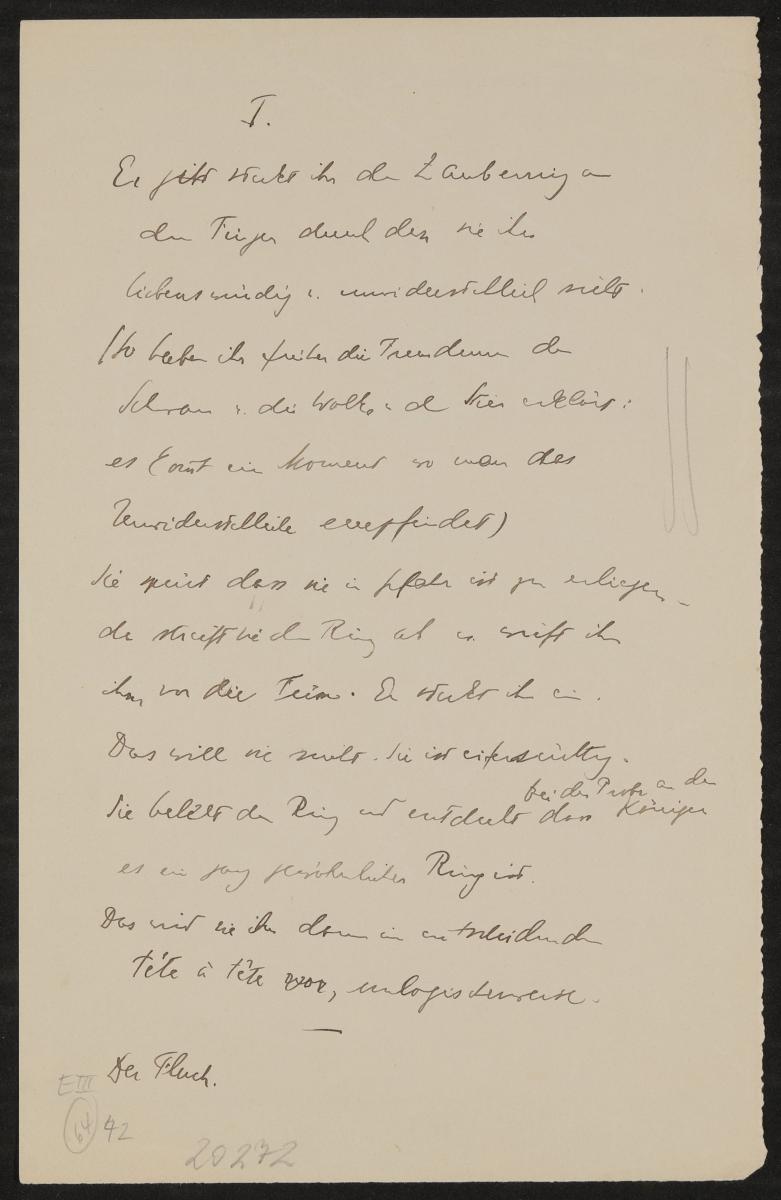 I.
Er gibt steckt ihr den Zauberring an
den Finger durch den sie ihn
liebenswürdig u. unwiderstehlich sieht.
(So haben ihr früher die Freundinnen den
Schwan u. die Wolke u. d Stier erklärt:
es kommt ein Moment wo man das
Unwiderstehliche empfindet)
Sie spürt dass sie in Gefahr ist zu erliegen –
da streift sie den Ring ab u. wirft ihn
ihm vor die Füsse. Er steckt ihn ein.
Das will sie nicht. Sie ist eifersüchtig.
bei der Probe an der
Sie behält den Ring und entdeckt dass Königin
es ein ganz gewöhnlicher Ring ist.
Das wirft sie ihm dann im entscheidenden
tête à tête vor, unlogischerweise.
Der Fluch.
E III
64 42
20272